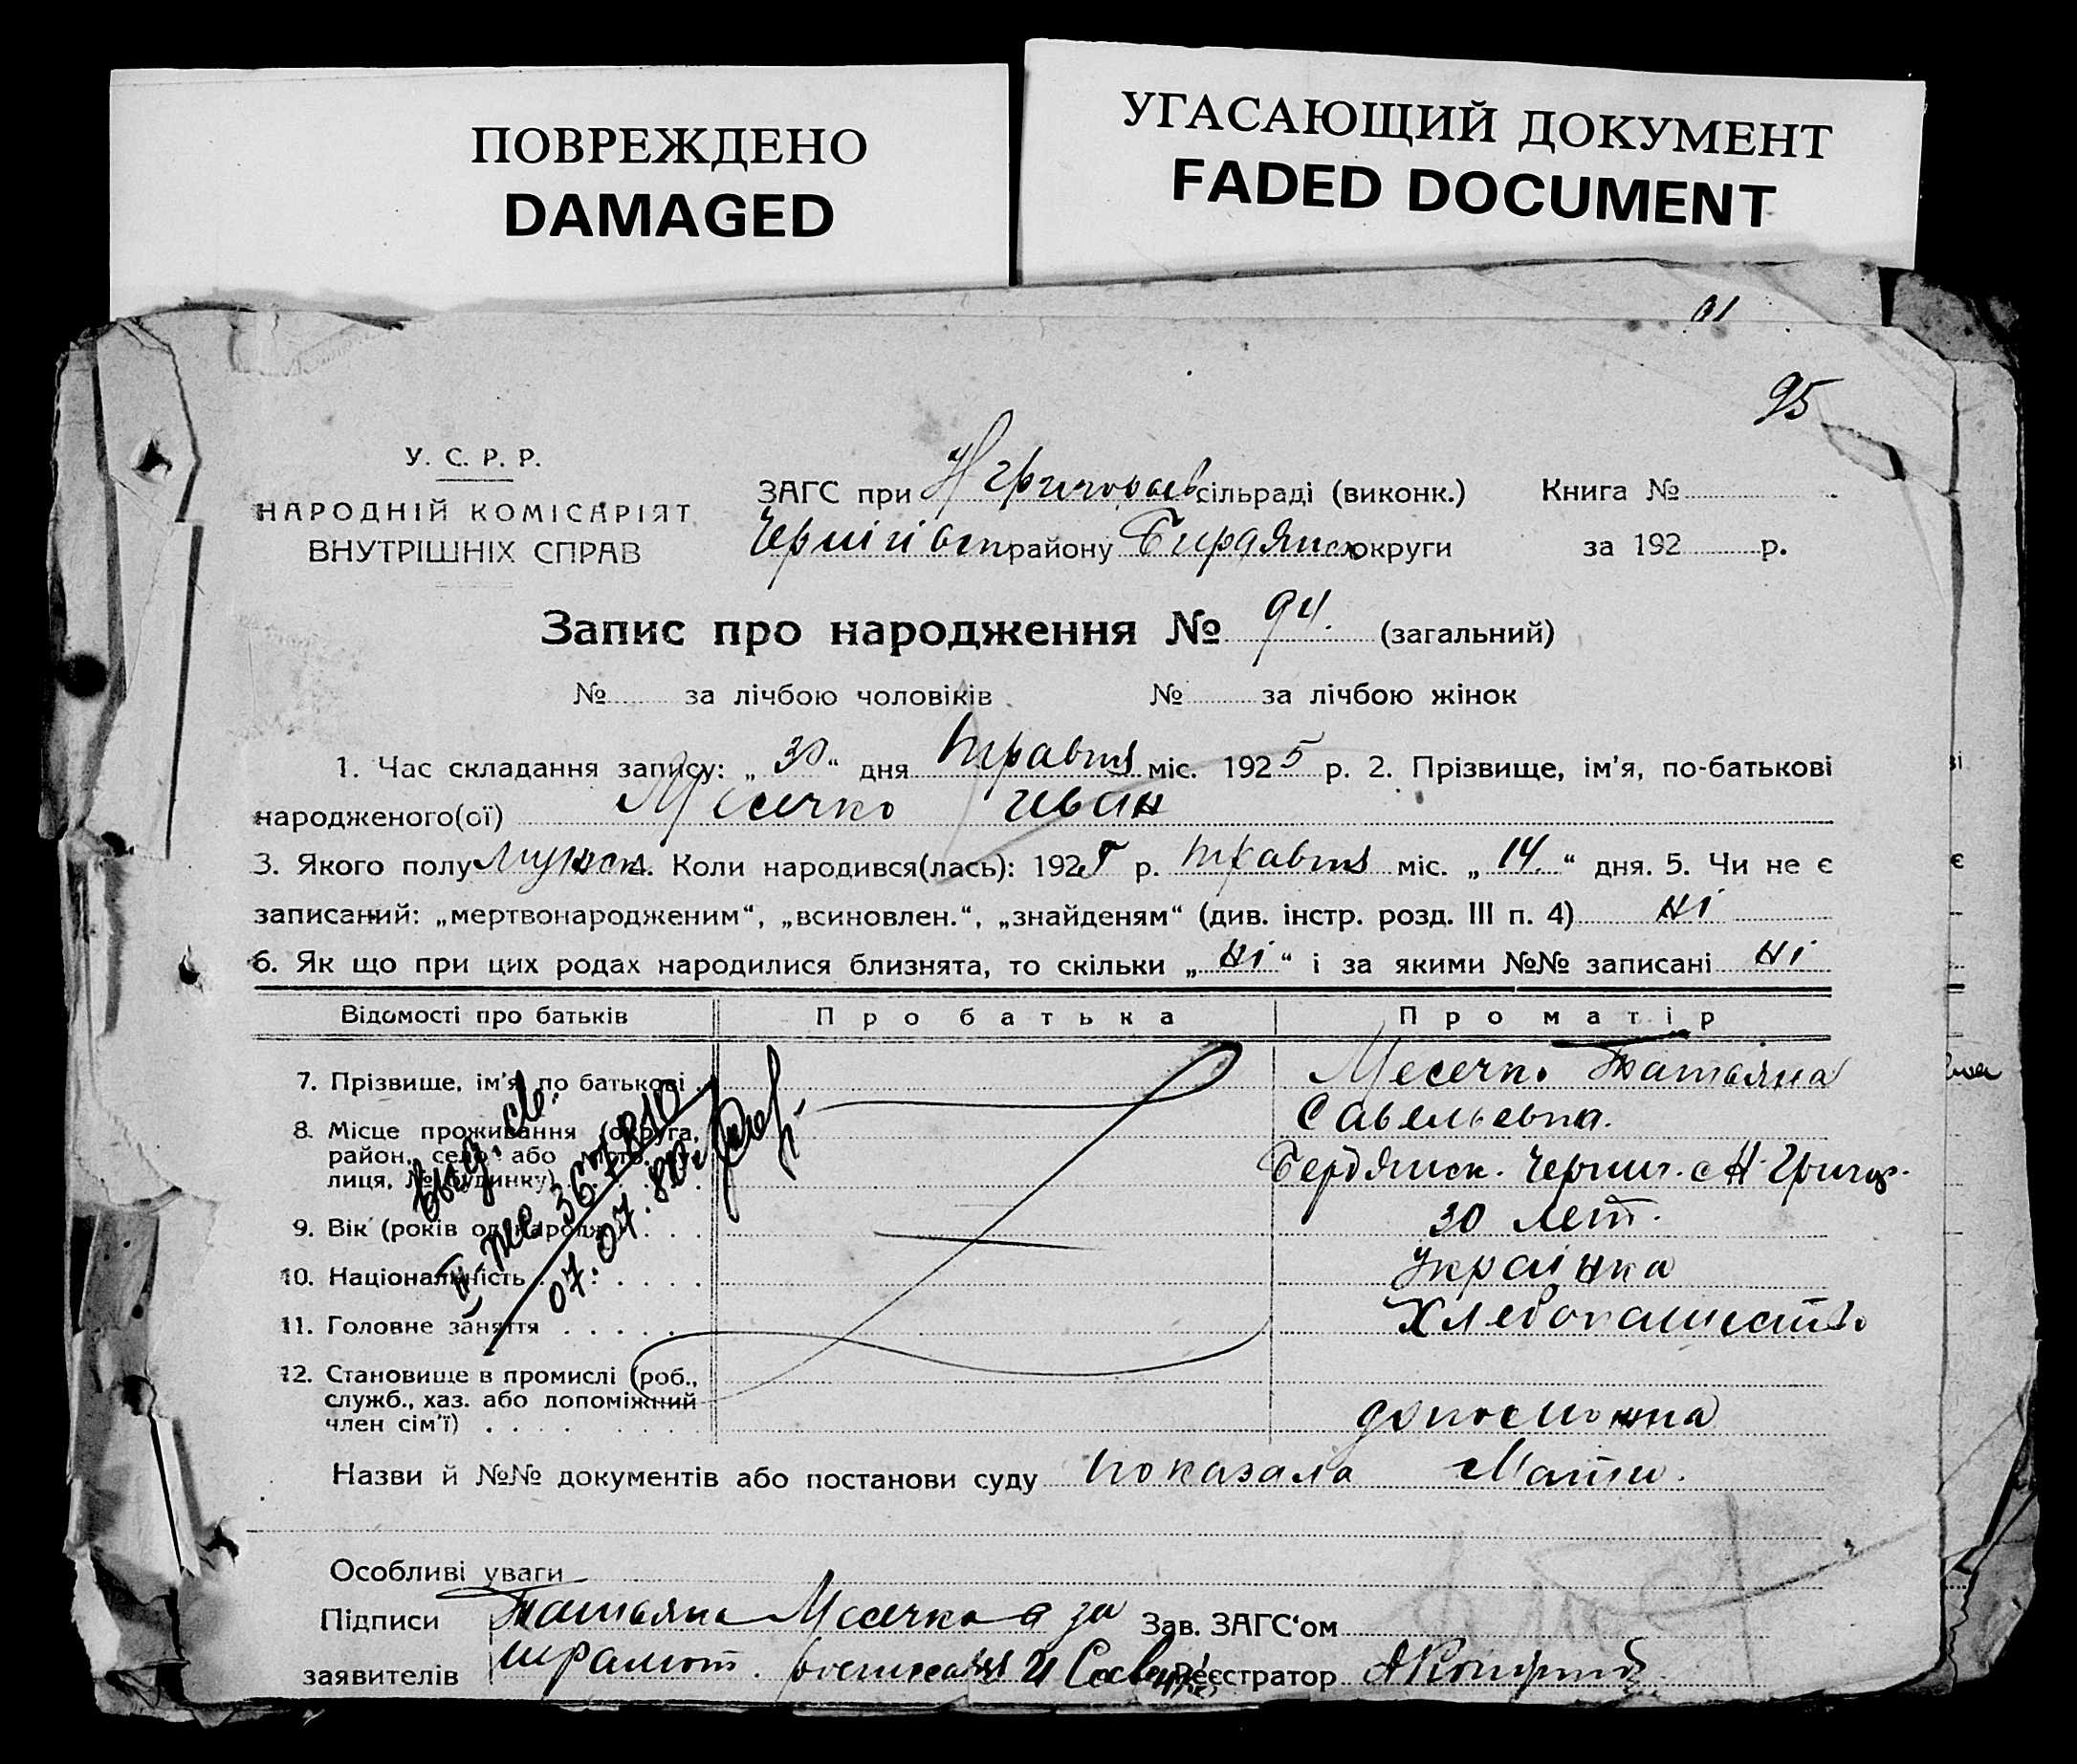 ПОВРЕЖДЕНО
DAMAGED
УГАСАЮЩИЙ ДОКУМЕНТ
FADED DOCUMENT
95
У. С. Р. Р.
НАРОДНІЙ КОМІСАРІЯТ
ВНУТРІШНІХ СПРАВ
ЗАГС при Н Григораєв сільраді (виконк.) Книга №
Чернігівск району Бирдянск округи за 192 р.
Запис про народження № 94. (загальний)
№ за лічбою чоловіків № за лічбою жінок
1. Час складання запису: „ 30 “ дня травня міс. 1925 р. 2. Прізвище, ім'я, по-батькові
народженого(ої) Месечко Иван
3. Якого полу мужск. 4. Коли народився(лась): 1925 р. травня міс. „ 14. “ дня. 5. Чи не є
записаний: „мертвонародженим“, „всиновлен.“, „знайденям“ (див. інстр. розд. III п. 4) ні
6. Як що при цих родах народилися близнята, то скільки „ ні “ і за якими №№ записані ні
Відомості про батьків Про батька Про матір
7. Прізвище, ім'я, по батькові Месечко Татьяна
Савельевна.
8. Місце проживання (округа,
район, село або
лиця, № будинку) Бердянск. Черниг. с Н-Григор.
9. Вік (років од народж.) 30 лет.
10. Національність Українка
11. Головне заняття Хлебопашество
12. Становище в промислі (роб.,
служб., хаз. або допоміжний
член сім'ї)
выд. св.
36
07.07.80г.
Назви й №№ документів або постанови суду показала Мати.
Особливі уваги
Підписи Татьяна Месечко а за Зав. ЗАГС'ом
заявителів Реєстратор